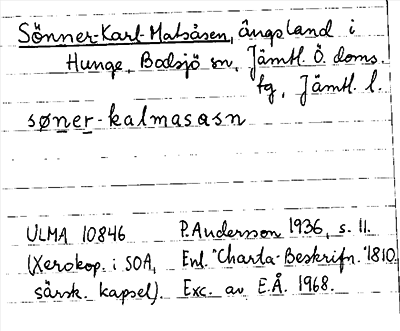 Sönner-Karl-Matsåsen, ängsland i
Hunge, Bodsjö sn, Jämtl. Ö. doms.
tg, Jämtl. l.
søner-kalmasasn
ULMA 10846 P. Andersson 1936, s. 11.
(Xerokop. i SOA, Enl. "Charta-Beskrifn." 1810.
särsk. kapsel). Exc. av E.Å. 1968.